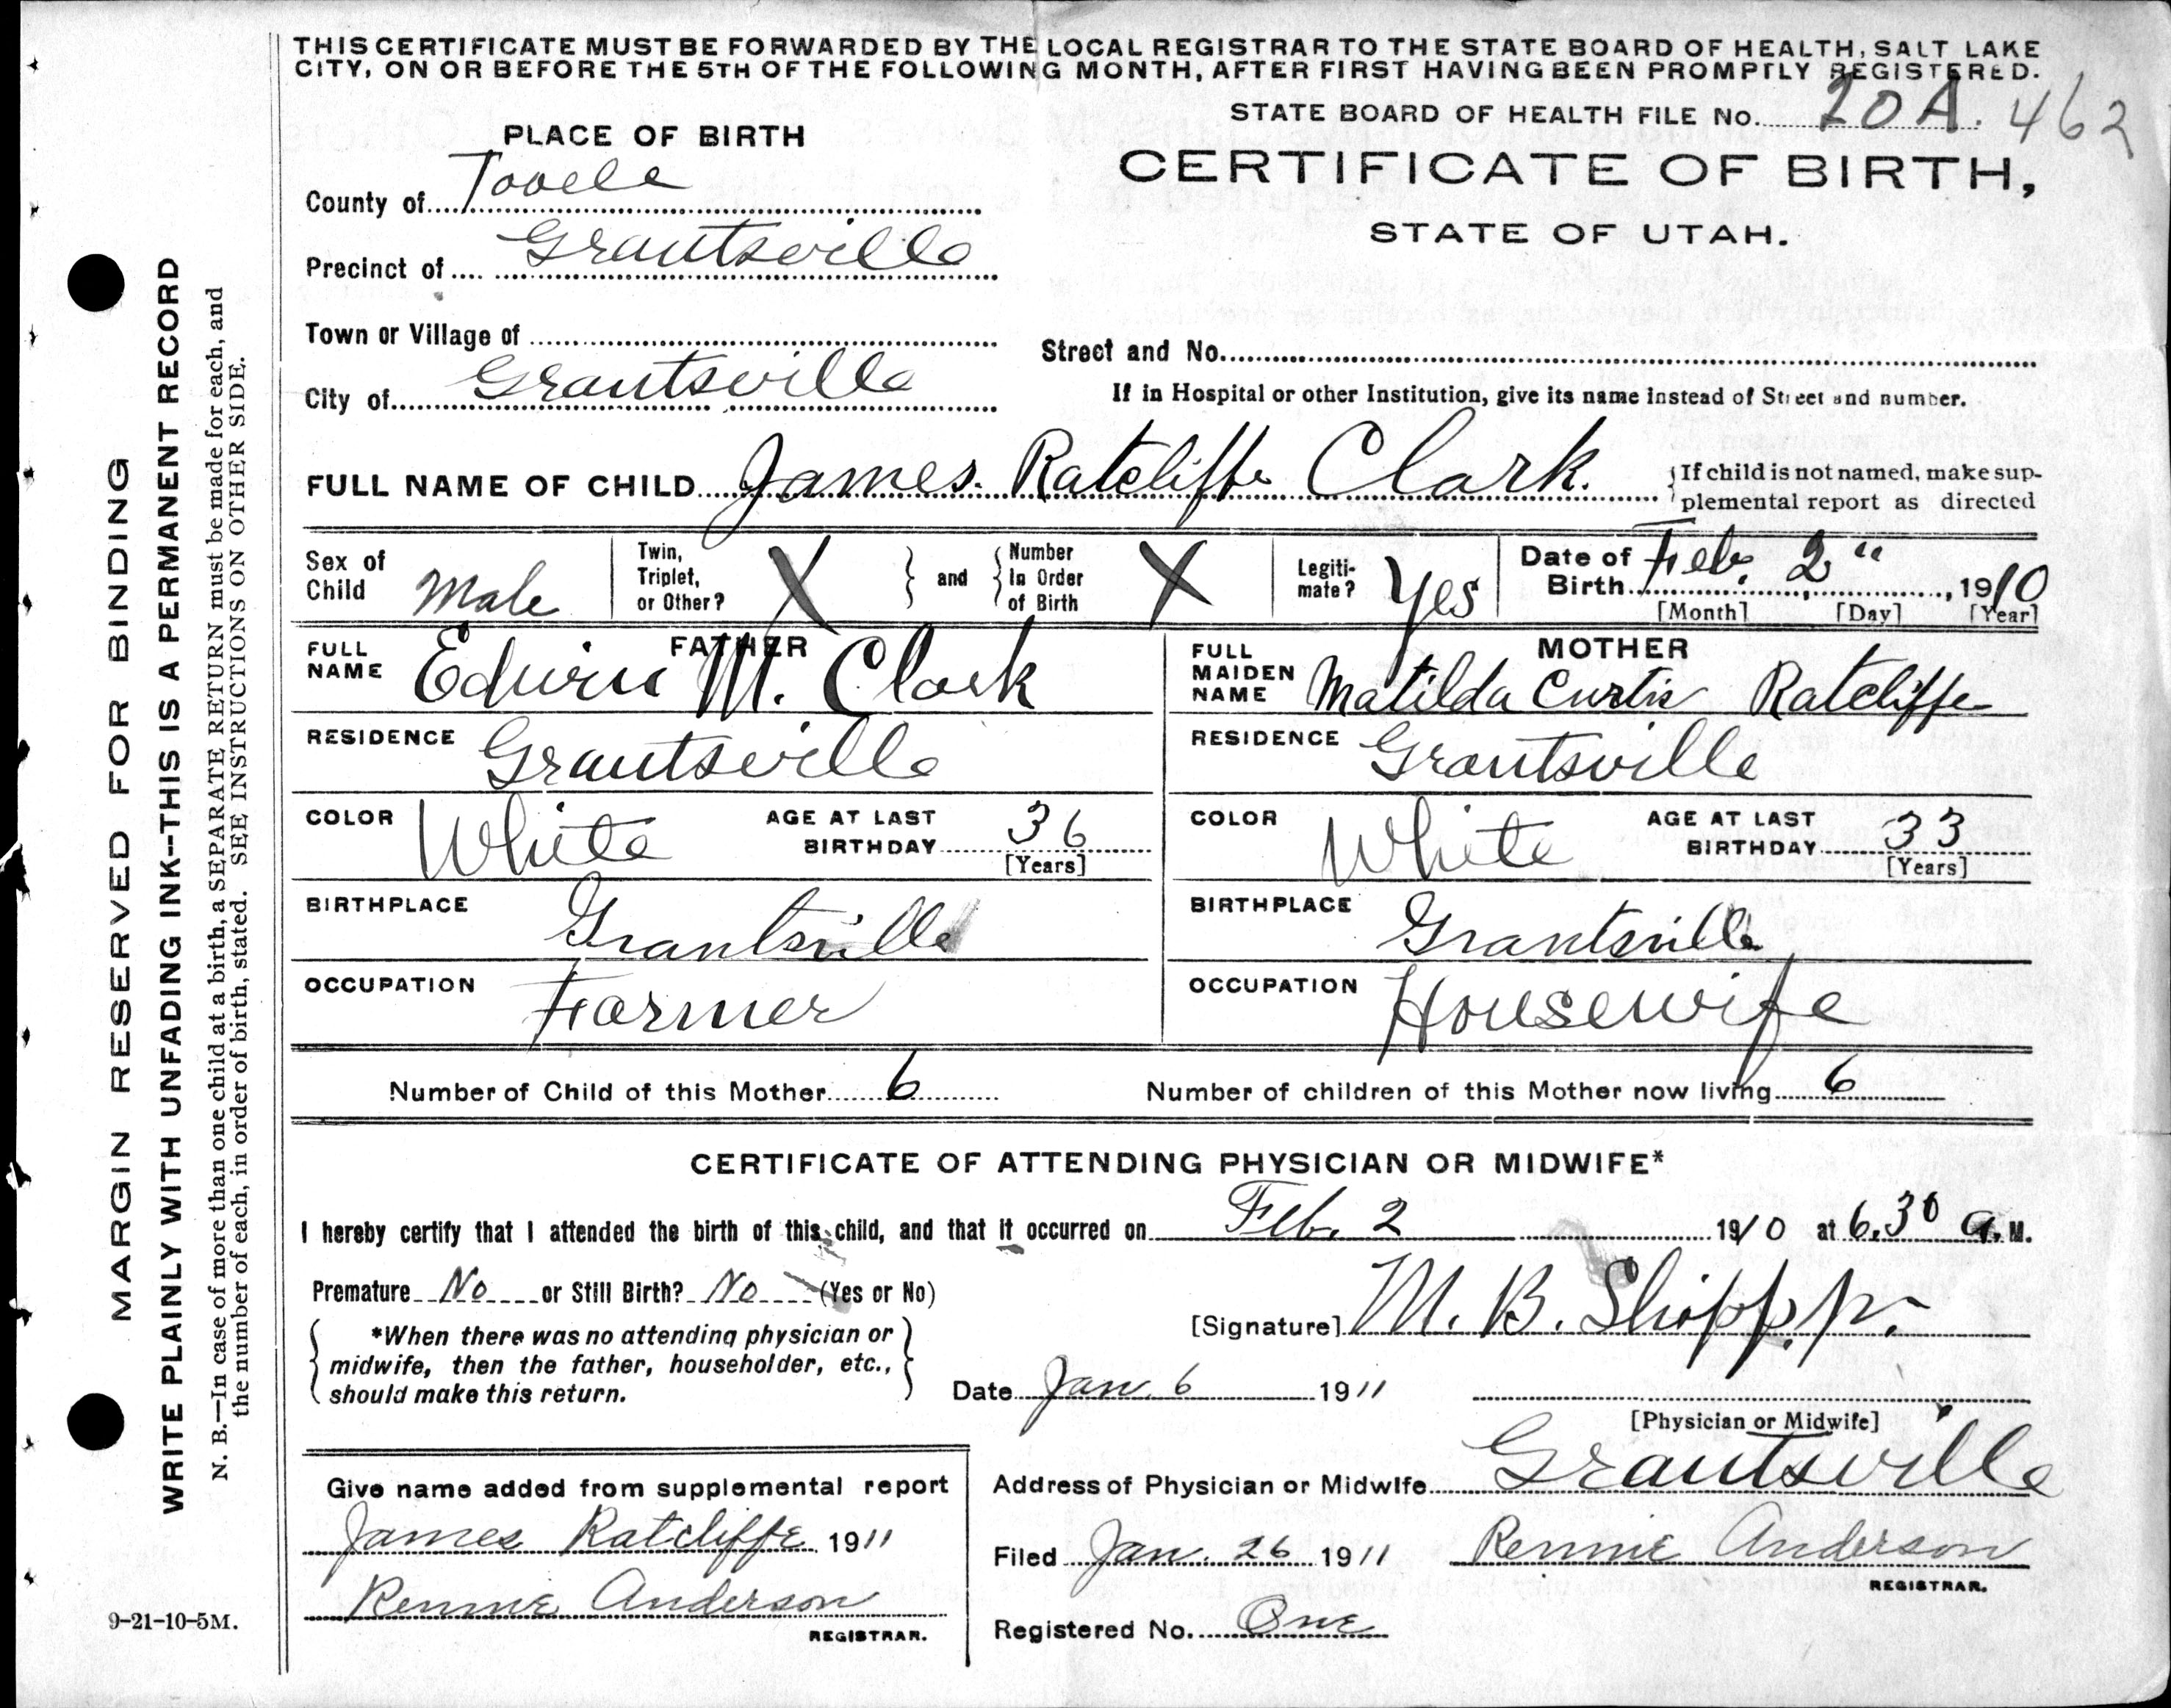 THIS CERTIFICATE MUST BE FORWARDED BY THE LOCAL REGISTRAR TO THE STATE BOARD OF HEALTH, SALT LAKE
CITY, ON OR BEFORE THE 5TH OF THE FOLLOWING MONTH, AFTER FIRST HAVING BEEN PROMPTLY REGISTERED.
STATE BOARD OF HEALTH FILE No. 20A. 462
PLACE OF BIRTH
CERTIFICATE OF BIRTH,
STATE OF UTAH.
County of Tooele
Precinct of Grantsville
Town or Village of
Street and No.
City of Grantsville
If in Hospital or other Institution, give its name instead of Street and number.
FULL NAME OF CHILD James Ratcliffe Clark.
If child is not named, make sup-
plemental report as directed
Sex of Child Male
Twin, Triplet, or Other? X
and
Number In Order of Birth X
Legiti-mate? Yes
Date of Birth Feb. 2" 1910
[Month] [Day] [Year]
FATHER
FULL NAME Edwin M. Clark
MOTHER
FULL MAIDEN NAME Matilda Curtis Ratcliffe
RESIDENCE Grantsville
RESIDENCE Grantsville
COLOR White AGE AT LAST BIRTHDAY 36 [Years]
COLOR White AGE AT LAST BIRTHDAY 33 [Years]
BIRTHPLACE Grantsville
BIRTHPLACE Grantsville
OCCUPATION Farmer
OCCUPATION Housewife
Number of Child of this Mother 6
Number of children of this Mother now living 6
CERTIFICATE OF ATTENDING PHYSICIAN OR MIDWIFE*
I hereby certify that I attended the birth of this child, and that it occurred on Feb. 2 1910 at 6.30 a. M.
Premature No or Still Birth? No (Yes or No)
*When there was no attending physician or
midwife, then the father, householder, etc.,
should make this return.
[Signature] M. B. Shipp.
Date Jan. 6 1911
[Physician or Midwife]
Address of Physician or Midwife Grantsville
Give name added from supplemental report
James Ratcliffe 1911
Rennie Anderson
REGISTRAR.
Filed Jan. 26 1911 Rennie Anderson
REGISTRAR.
Registered No. One
MARGIN RESERVED FOR BINDING
WRITE PLAINLY WITH UNFADING INK--THIS IS A PERMANENT RECORD
N. B.—In case of more than one child at a birth, a SEPARATE RETURN must be made for each, and
the number of each, in order of birth, stated. SEE INSTRUCTIONS ON OTHER SIDE.
9-21-10-5M.